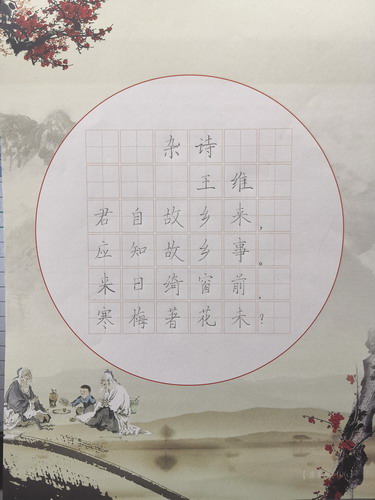 杂诗
王维
君自故乡来，
应知故乡事。
来日绮窗前，
寒梅著花未？